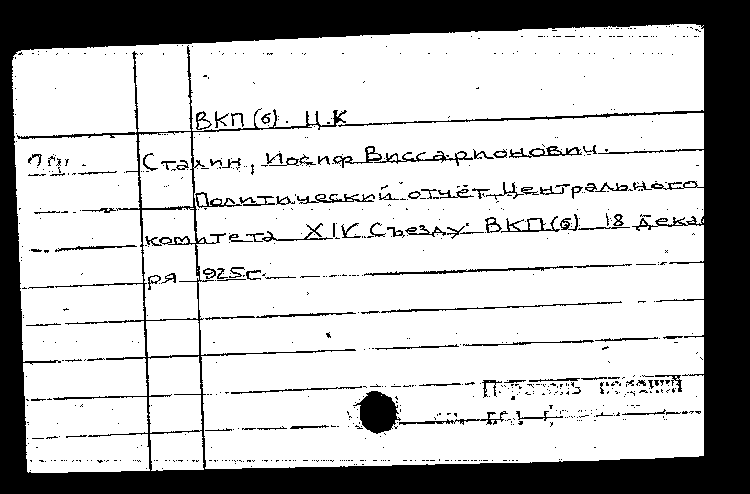 ВКП(б). Ц.К
Сталин, Иосиф Виссарионович.
Политический отчёт Центрального
комитета XIV Съезду ВКП(б) 18 декаб
ря 1925г.
Перечень изданий
см.